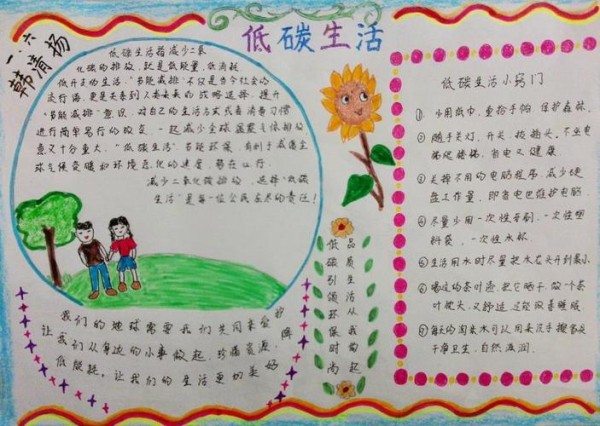 低碳生活
一.六
韩清扬
低碳生活指减少二氧
化碳的排放，就是低能量、低消耗
低开支的生活。“节能减排”不仅是当今社会的
流行语，更是关系到人类未来的战略选择。提升
“节能减排”意识，对自己的生活方式或者消费习惯
进行简单易行的改变，一起减少全球温室气体排放
意义十分重大。“低碳生活”节能环保，有利于减缓全
球气候变暖和环境恶化的速度，势在必行。
减少二氧化碳排放，选择“低碳
生活”是每位公民应尽的责任！
我们的地球需要我们共同来爱护
让我们从身边的小事做起，珍惜资源，降
低能耗，让我们的生活更加美好
低碳引领环保时尚
品质生活从我向起
低碳生活小窍门
①少用纸巾，重拾手帕，保护森林。
②随手关灯、开关、拔插头，不坐电
梯爬楼梯，省电又健康。
③关掉不用的电脑程序，减少硬
盘工作量，即省电也维护电脑。
④尽量少用一次性牙刷、一次性塑
料袋、一次性水杯。
⑤生活用水时尽量把水龙头开到最小
⑥喝过的茶叶渣，把它晒干，做一个茶
叶枕头，又舒适，还能改善睡眠。
⑦每天的淘米水可以用来洗手擦家具
干净卫生，自然滋润。